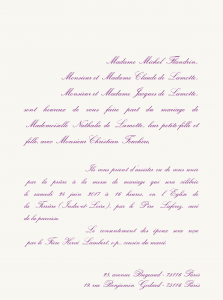 Madame Michel Flandrin,
Monsieur et Madame Claude de Lamotte,
Monsieur et Madame Jacques de Lamotte,
sont heureux de vous faire part du mariage de
Mademoiselle Nathalie de Lamotte, leur petite-fille et
fille, avec Monsieur Christian
Ils vous prient d'assister ou de vous unir
par la prière à la messe de mariage qui sera célébrée
le samedi 24 juin 1987 à 16 heures, en l'Eglise de
la (Indre-et-Loire), par le Père curé
de la paroisse.
Le consentement des époux sera reçu
par le Frère Hervé o.p., cousin du marié.
avenue 75116 Paris
rue Benjamin Godard - 75116 Paris